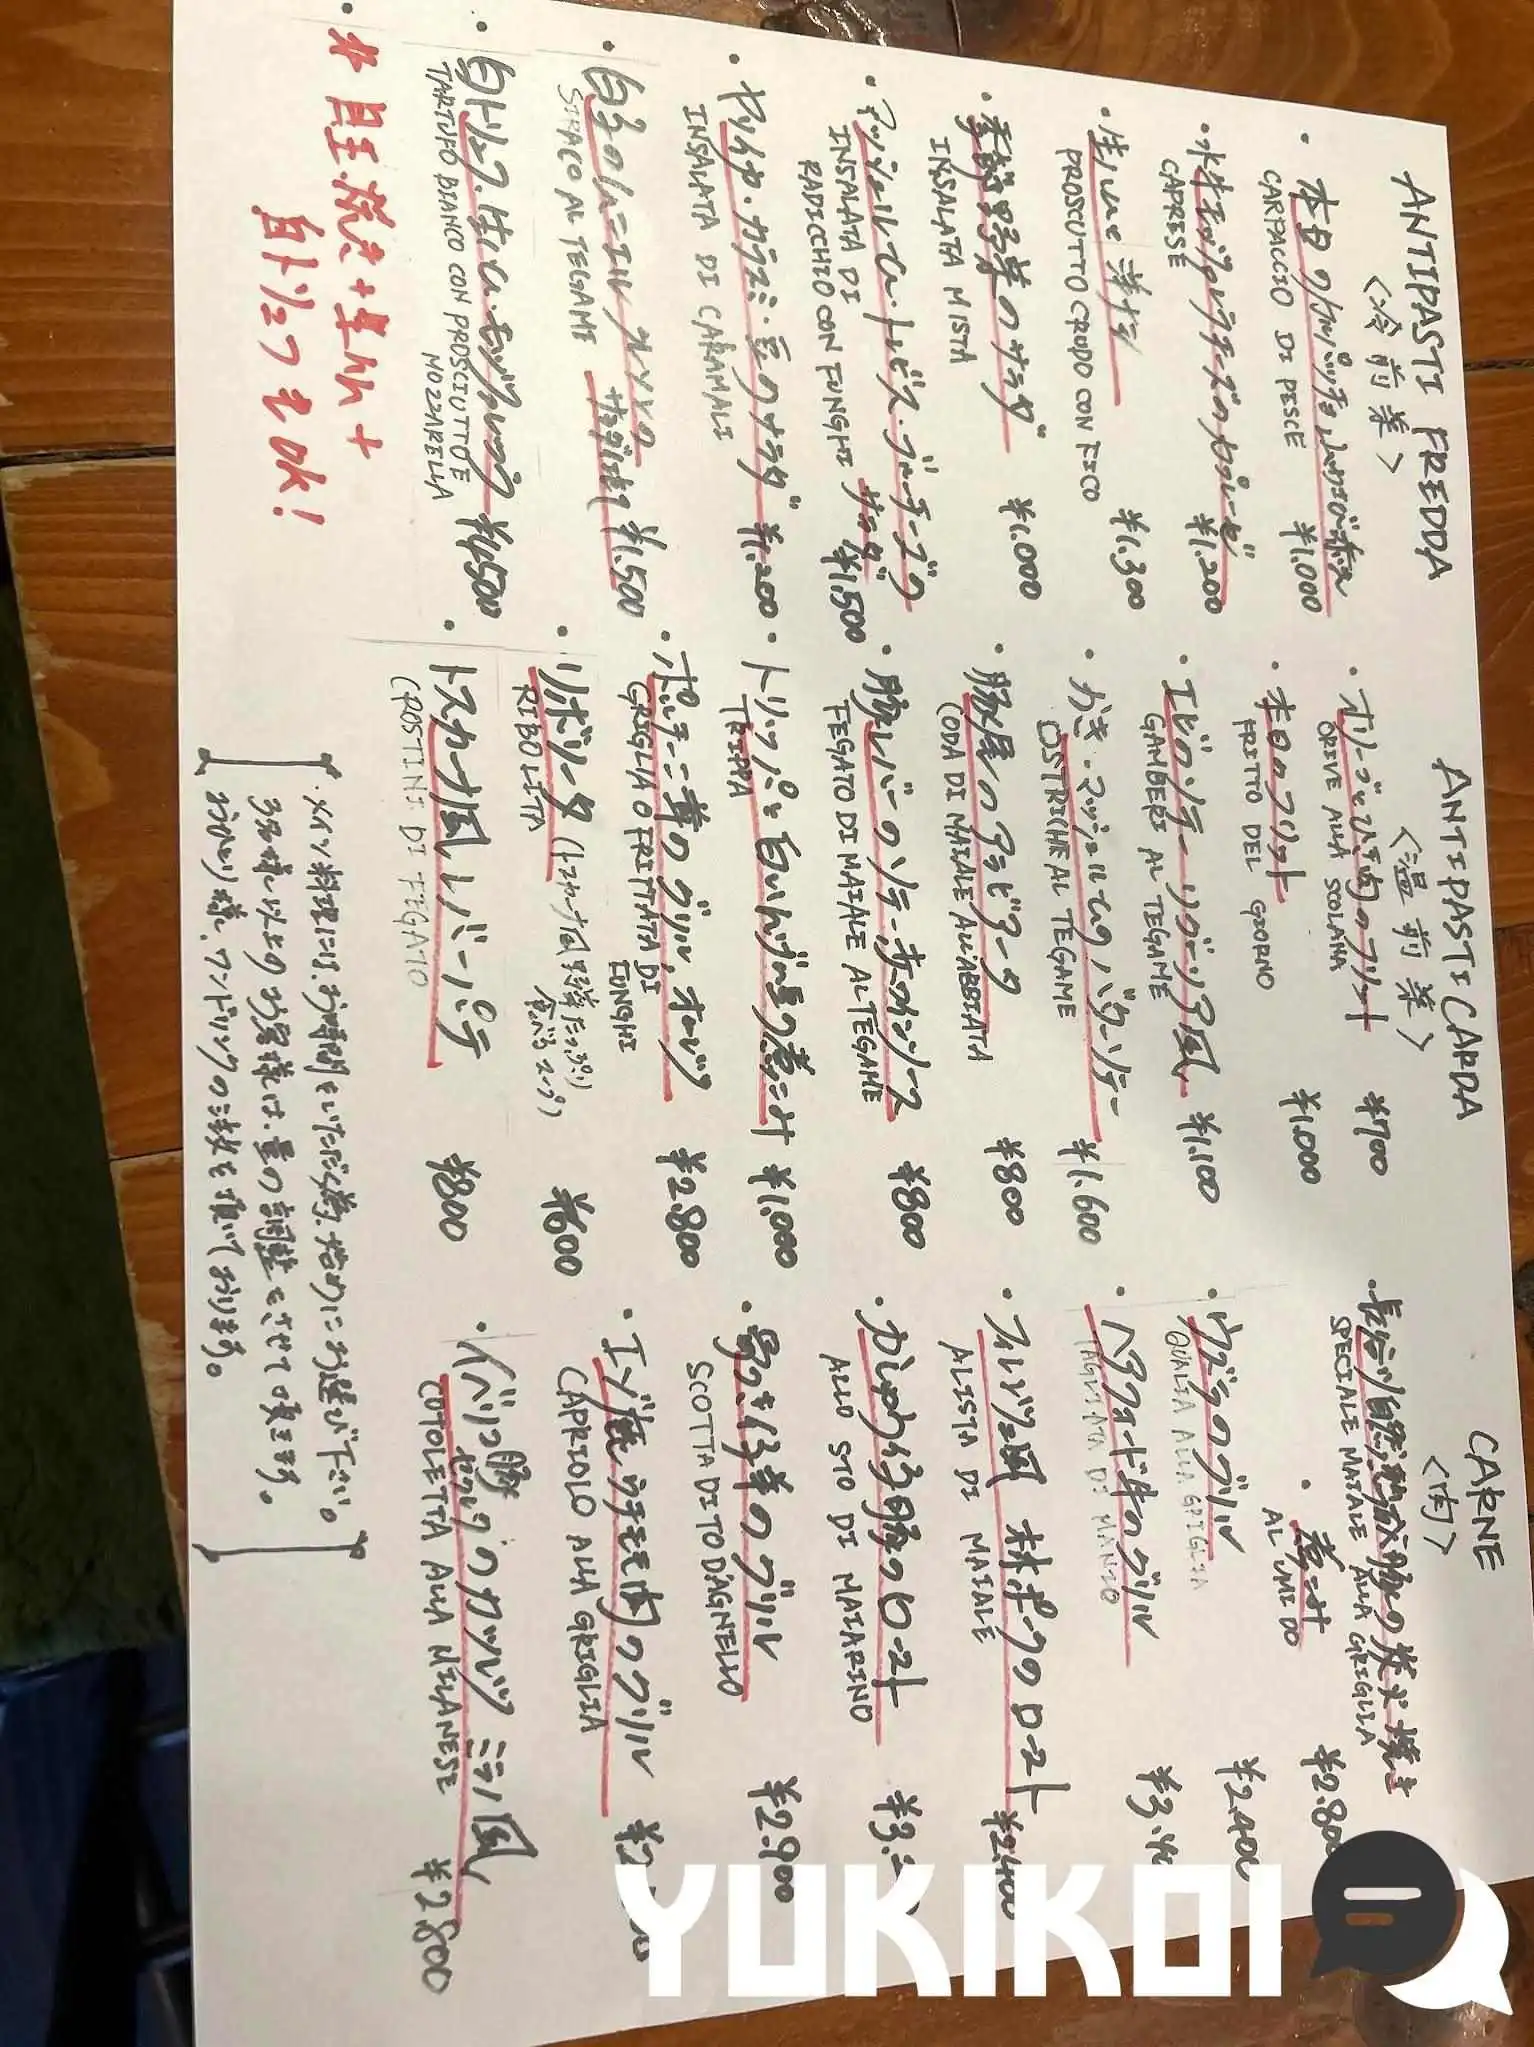 ANTIPASTI FREDDA
<冷前菜>
・本日のカルパッチョ
CARPACCIO DI PESCE ¥1.000
・水牛モッツァレラチーズのカプレーゼ
CAPRESE ¥1.200
・生ハムと
PROSCUTTO CRUDO CON FICO ¥1.300
・季節野菜のサラダ
INSALATA MISTA ¥1.000
・マッシュルーム・トレビス・ブルーチーズの
INSALATA DI サラダ ¥1.500
RADICCHIO CON FUNGHI
・ヤリイカ・カラスミ・豆のサラダ ¥1.200
INSALATA DI CARAMALI
・白子のムニエル
SIRACO AL TEGAMI ¥1.500
・白トリュフ・生ハム・モッツァレラ ¥4.500
TARTUFO BIANCO CON PROSCIUTTO E
MOZZARELLA
・# 目玉焼き+
白トリュフもOK!
ANTIPASTI CARDA
<温前菜>
・オリーブとひき肉のフリット
ORIVE ALLA SCOLANA ¥700
・本日のフリット
FRITTO DEL GIORNO ¥1.000
・エビのソテー リグーリア風
GAMBERI AL TEGAME ¥1.100
・かき・マッシュルームのバターソテー
OSTRICHE AL TEGAME ¥1.600
・豚尾のアラビアータ
CODA DI MAIALE ALL'ABBIATA ¥800
・豚レバーのソテー 赤ワインソース
FEGATO DI MAIALE AL TEGAME ¥800
・トリッパと白いんげん豆の煮こみ ¥1.000
TRIPPA
・ポルチーニ茸のグリル、オムレツ
GRIGLIA O FRITTATA DI
FUNGHI ¥2.800
・リボリータ(トスカーナ風野菜たっぷり
食べるスープ)
RIBOLETA ¥600
・トスカーナ風レバーパテ
CROSTINI DI FEGATO ¥800
CARNE
<肉>
・長谷川自然熟成豚の炭火焼き
SPECIALE MAIALE ALLA GRIGLIA
・煮こみ
AL UMIDO ¥2.800
・ウズラのグリル
QUALIA ALLA GRIGLIA ¥2.400
・ヘアフォード牛のグリル
TAGLIATA DI MANZO
・フィレンツェ風 林ポークのロースト ¥2.400
ALISTA DI MAIALE
・かしわ仔豚のロースト
ALLO STO DI MAIARINO
・骨つき仔羊のグリル
SCOTTADITO D'AGNELLO ¥2.900
・エゾ鹿 ウチモモ肉のグリル
CAPRIOLO ALLA GRIGLIA
・イベリコ豚 のカツレツ ミラノ風
COTOLETTA ALLA MILANESE ¥2.800
・メイン料理には、お時間をいただく為、始めにお選び下さい。
3名様以上のお客様は、量の調整をさせて頂きます。
おひとり様、ワンドリンクの注文を頂いております。
YUKIKOI